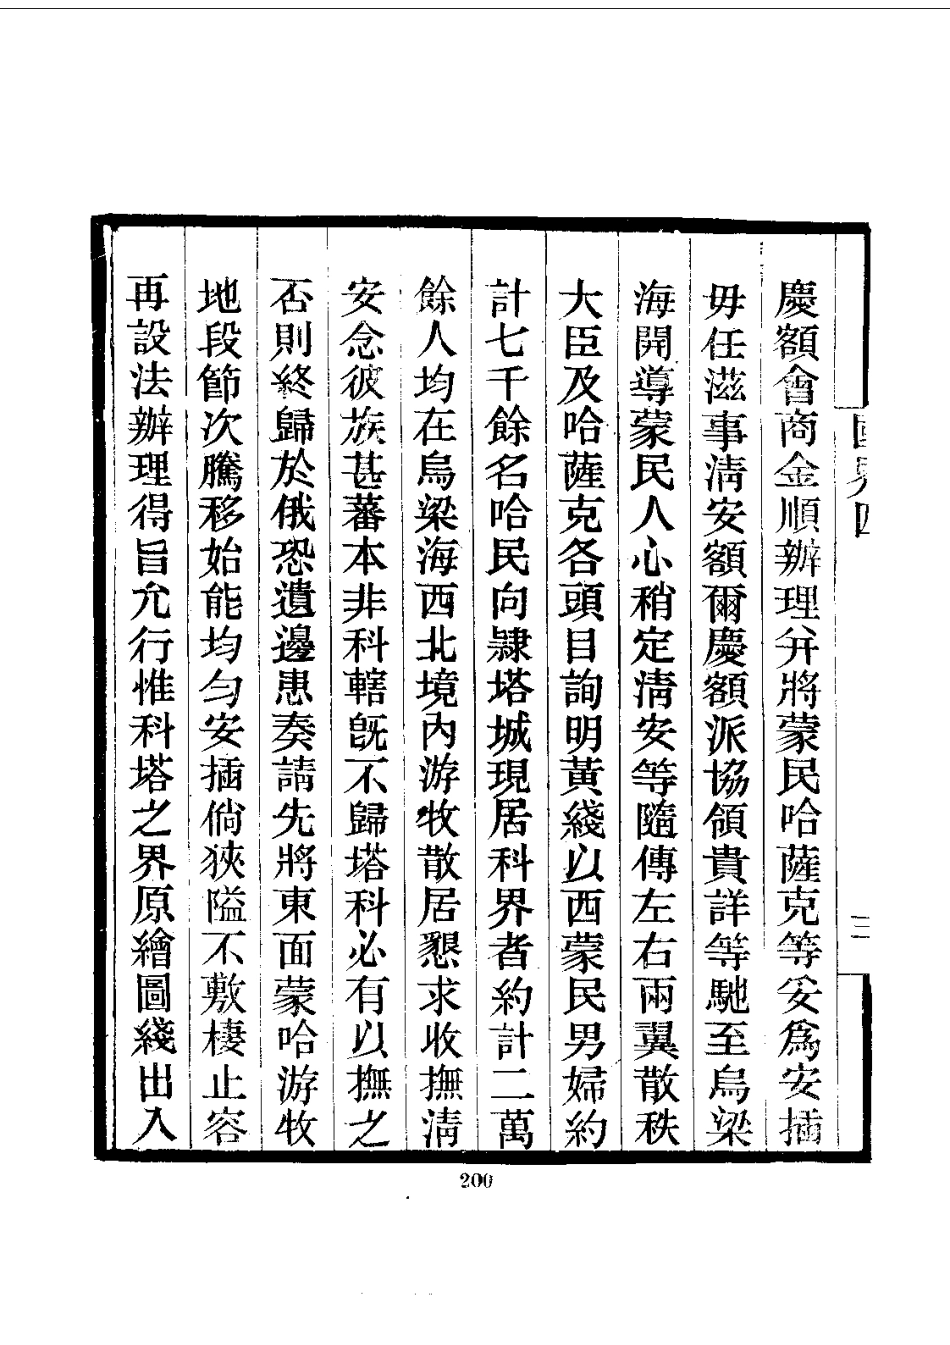 國界四
三
慶額會商金順辦理幷將蒙民哈薩克等妥爲安插
毋任滋事淸安額爾慶額派協領貴詳等馳至烏梁
海開導蒙民人心稍定淸安等隨傳左右兩翼散秩
大臣及哈薩克各頭目詢明黃綫以西蒙民男婦約
計七千餘名哈民向隸塔城現居科界者約計二萬
餘人均在烏梁海西北境內游牧散居懇求收撫淸
安念彼族甚蕃本非科轄旣不歸塔科必有以撫之
否則終歸於俄恐遺邊患奏請先將東面蒙哈游牧
地段節次騰移始能均勻安插倘狹隘不敷棲止容
再設法辦理得旨允行惟科塔之界原繪圖綫出入
200